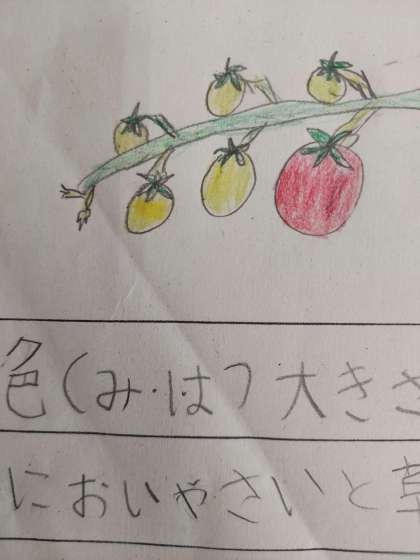 色(み・は)大きさ
においやさいと草